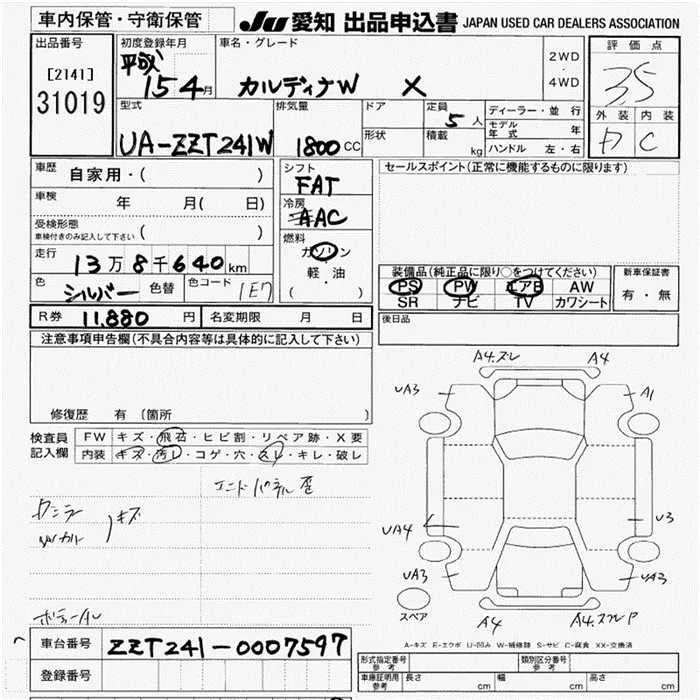 車内保管・守衛保管
JU 愛知 出品申込書 JAPAN USED CAR DEALERS ASSOCIATION
出品番号
[2141]
31019
初度登録年月
平成
15 4月
車名・グレード
カルディナW X
2WD
・
4WD
評価点
3.5
外装 内装
D C
型式
UA-ZZT241W
排気量
1800 CC
ドア
形状
定員
5 人
積載
kg
ディーラー・並行
モデル年式 年
ハンドル 左・右
車歴
自家用・( )
車検
年 月( 日)
受検形態
車検付きのみ記入して下さい ( )
走行
13万8千640km
色
シルバー
色替
色コード
1E7
シフト
FAT
冷房
AAC
燃料
ガソリン
軽・油
( )
セールスポイント(正常に機能するものに限ります)
装備品(純正品に限り○をつけてください)
PS PW エアB AW
SR ナビ TV カワシート
新車保証書
有・無
R券 11,880 円
名変期限 月 日
後日品
注意事項申告欄(不具合内容等は具体的に記入して下さい)
修復歴 有 (箇所 )
検査員
記入欄
FW キズ・飛石・ヒビ割・リペア跡・X要
内装 キズ・汚レ・コゲ・穴・スレ・キレ・破レ
エンドパネル歪
キズ
A4.スレ A4
UA3 A1
UA4 U3
UA3 UA3
スペア
A4 A4.スレP
A-キズ E-エクボ U-凹み W-補修跡 S-サビ C-腐食 XX-交換済
車台番号
ZZT241-0007597
登録番号
形式指定番号
参考
類別区分番号
参考
車庫証明用
参考
長さ cm 幅 cm 高さ cm